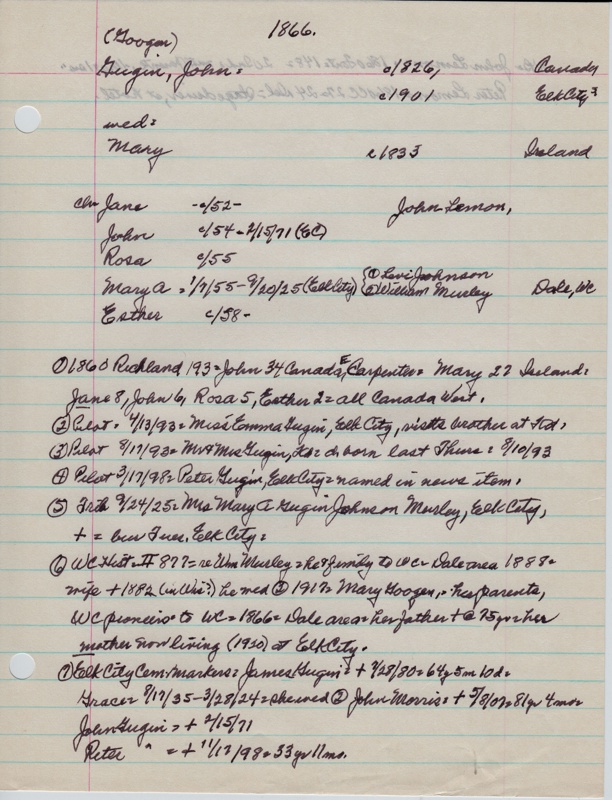 1866.
(Googen)
Gugin, John = c1826, Canada
c1901 Elk City?
med =
Mary c1833 Ireland
chn Jane -c/52- John Lemon,
John c/54 - 2/15/71 (EC)
Rosa c/55
Mary A = 1/7/55 - 9/20/25 (Elk City) {① Levi Johnson
② William Murley Dale, WC
Esther c/58-
① 1860 Richland 193 = John 34 Canada E, Carpenter = Mary 27 Ireland =
Jane 8, John 6, Rosa 5, Esther 2 = all Canada West.
② Pilot = 4/13/93 = Miss Emma Gugin, Elk City, visits brother at Ft S.
③ Pilot 8/17/93 = Mr & Mrs Gugin, = d born last Thurs = 8/10/93
④ Pilot 3/17/98 = Peter Gugin, Elk City = named in news item.
⑤ Trib 9/24/25 = Mrs Mary A Gugin Johnson Murley, Elk City,
+ = bur Tues. Elk City =
⑥ WC Hist - II 877 = re Wm Murley = he & family to WC = Dale area 1888 =
wife + 1882 (in Wis?) he med ② 1917 = Mary Googen, = her parents,
WC pioneers to WC = 1866 = Dale area = her father + @ 75 yr = her
mother now living (1910) at Elk City.
⑦ Elk City Cem. Markers = James Gugin = + 7/28/80 = 64y 5m 10d =
Grace = 8/17/35 - 3/28/24 = she wed ② John Morris = + 5/8/07 = 81 yr 4 mo =
John Gugin = + 2/15/71
Peter " = + 11/17/98 = 33 yr 11 mo.